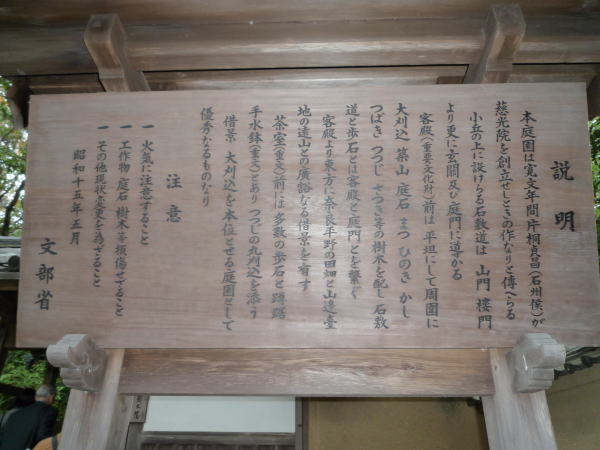 説明
本庭園は寛文年間片桐貞昌(石州侯)が
慈光院を創立せしときの作なりと傳へらる
小丘の上に設けらる石敷道は 山門 楼門
より更に玄関及び庭門に導かる
客殿(重要文化財)前は 平坦にして周囲に
大刈込 築山 庭石 まつ ひのき かし
つばき つつじ さつき等の樹木を配し石敷
道と歩石とは客殿と庭門とを繋ぐ
客殿より東方に奈良平野の田畑と山邉臺
地の遠山との廣谿なる借景を有す
茶室(重文)前は多数の歩石と蹲踞
手水鉢(重文)とあり つつじの丸刈込を添う
借景 大刈込を本位とせる庭園として
優秀なるものなり
注意
一 火氣に注意すること
一 工作物 庭石 樹木等を損傷せざること
一 その他現状変更を為さざること
昭和十五年五月
文部省